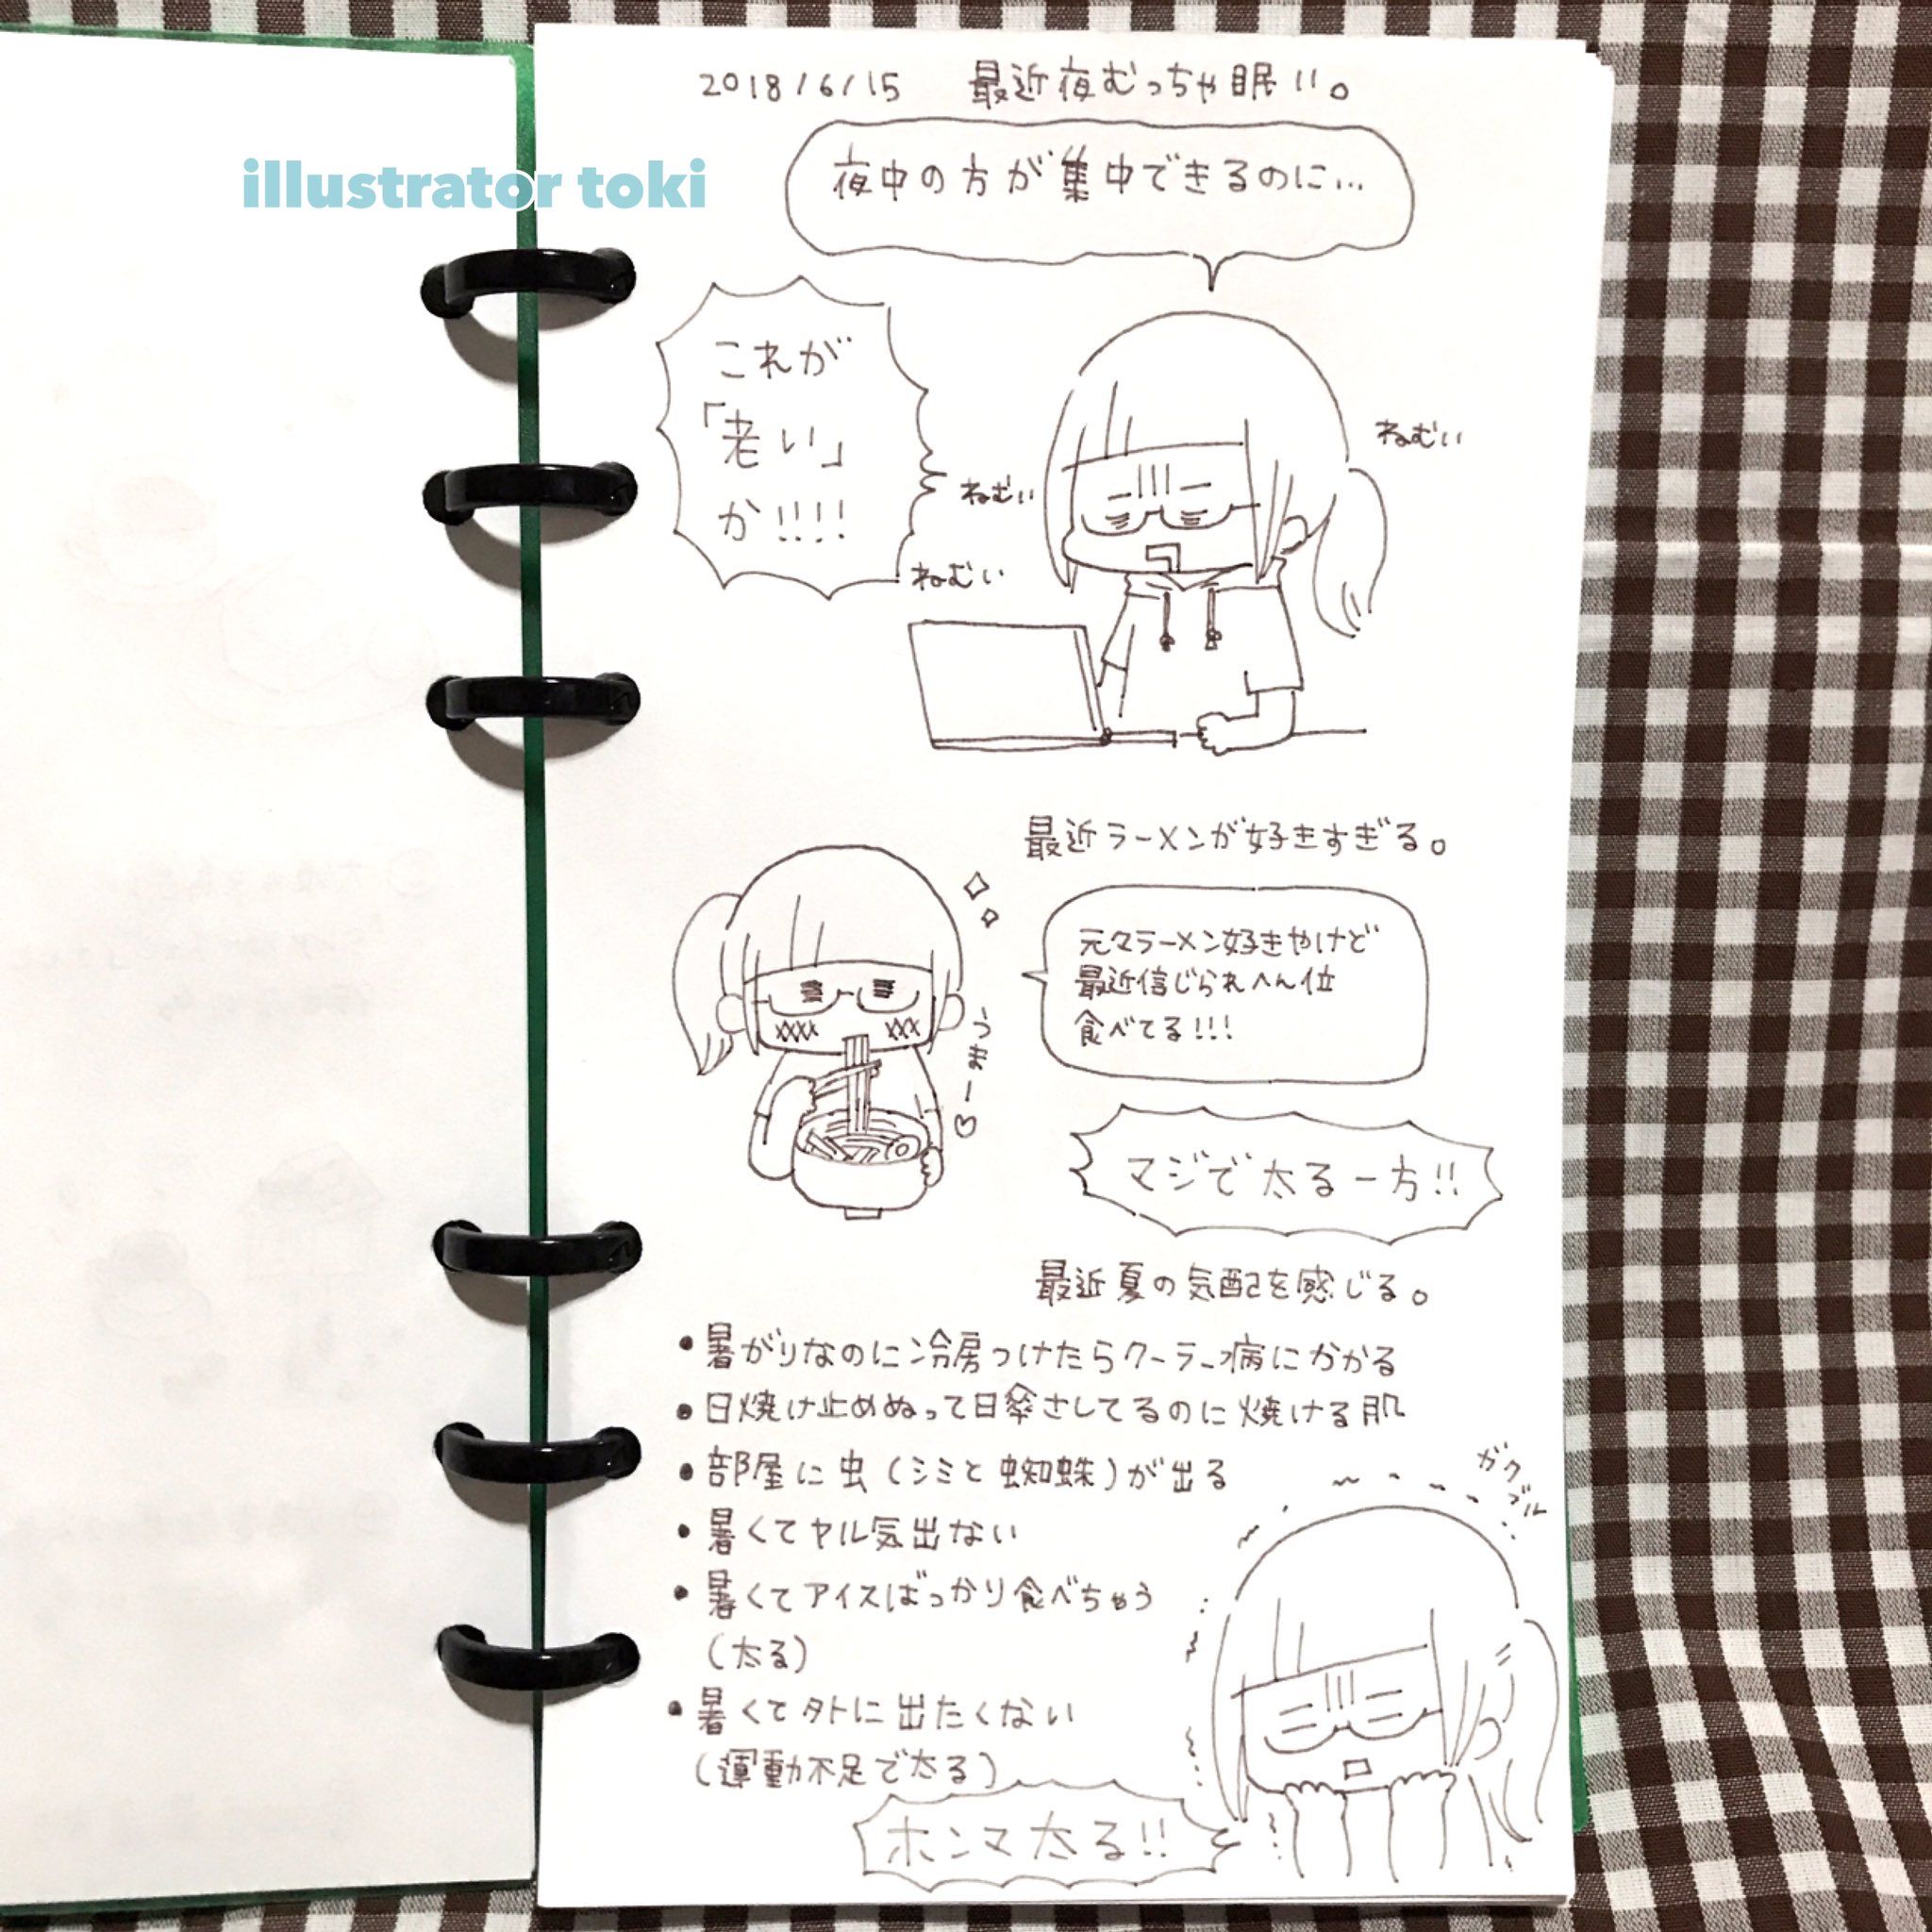 2018/6/15 最近夜むっちゃ眠い。
illustrator toki
夜中の方が集中できるのに...
これが
「老い」
か!!!!
ねむい
ねむい
ねむい
最近ラーメンが好きすぎる。
元々ラーメン好きやけど
最近信じられへん位
食べてる!!!
うまー♡
マジで太る一方!!
最近夏の気配を感じる。
・暑がりなのに冷房つけたらクーラー病にかかる
・日焼け止めぬって日傘さしてるのに焼ける肌
・部屋に虫(シミと蜘蛛)が出る
・暑くてヤル気出ない
・暑くてアイスばっかり食べちゃう
(太る)
・暑くて外に出たくない
(運動不足で太る)
ガクブル
ホンマ太る!!